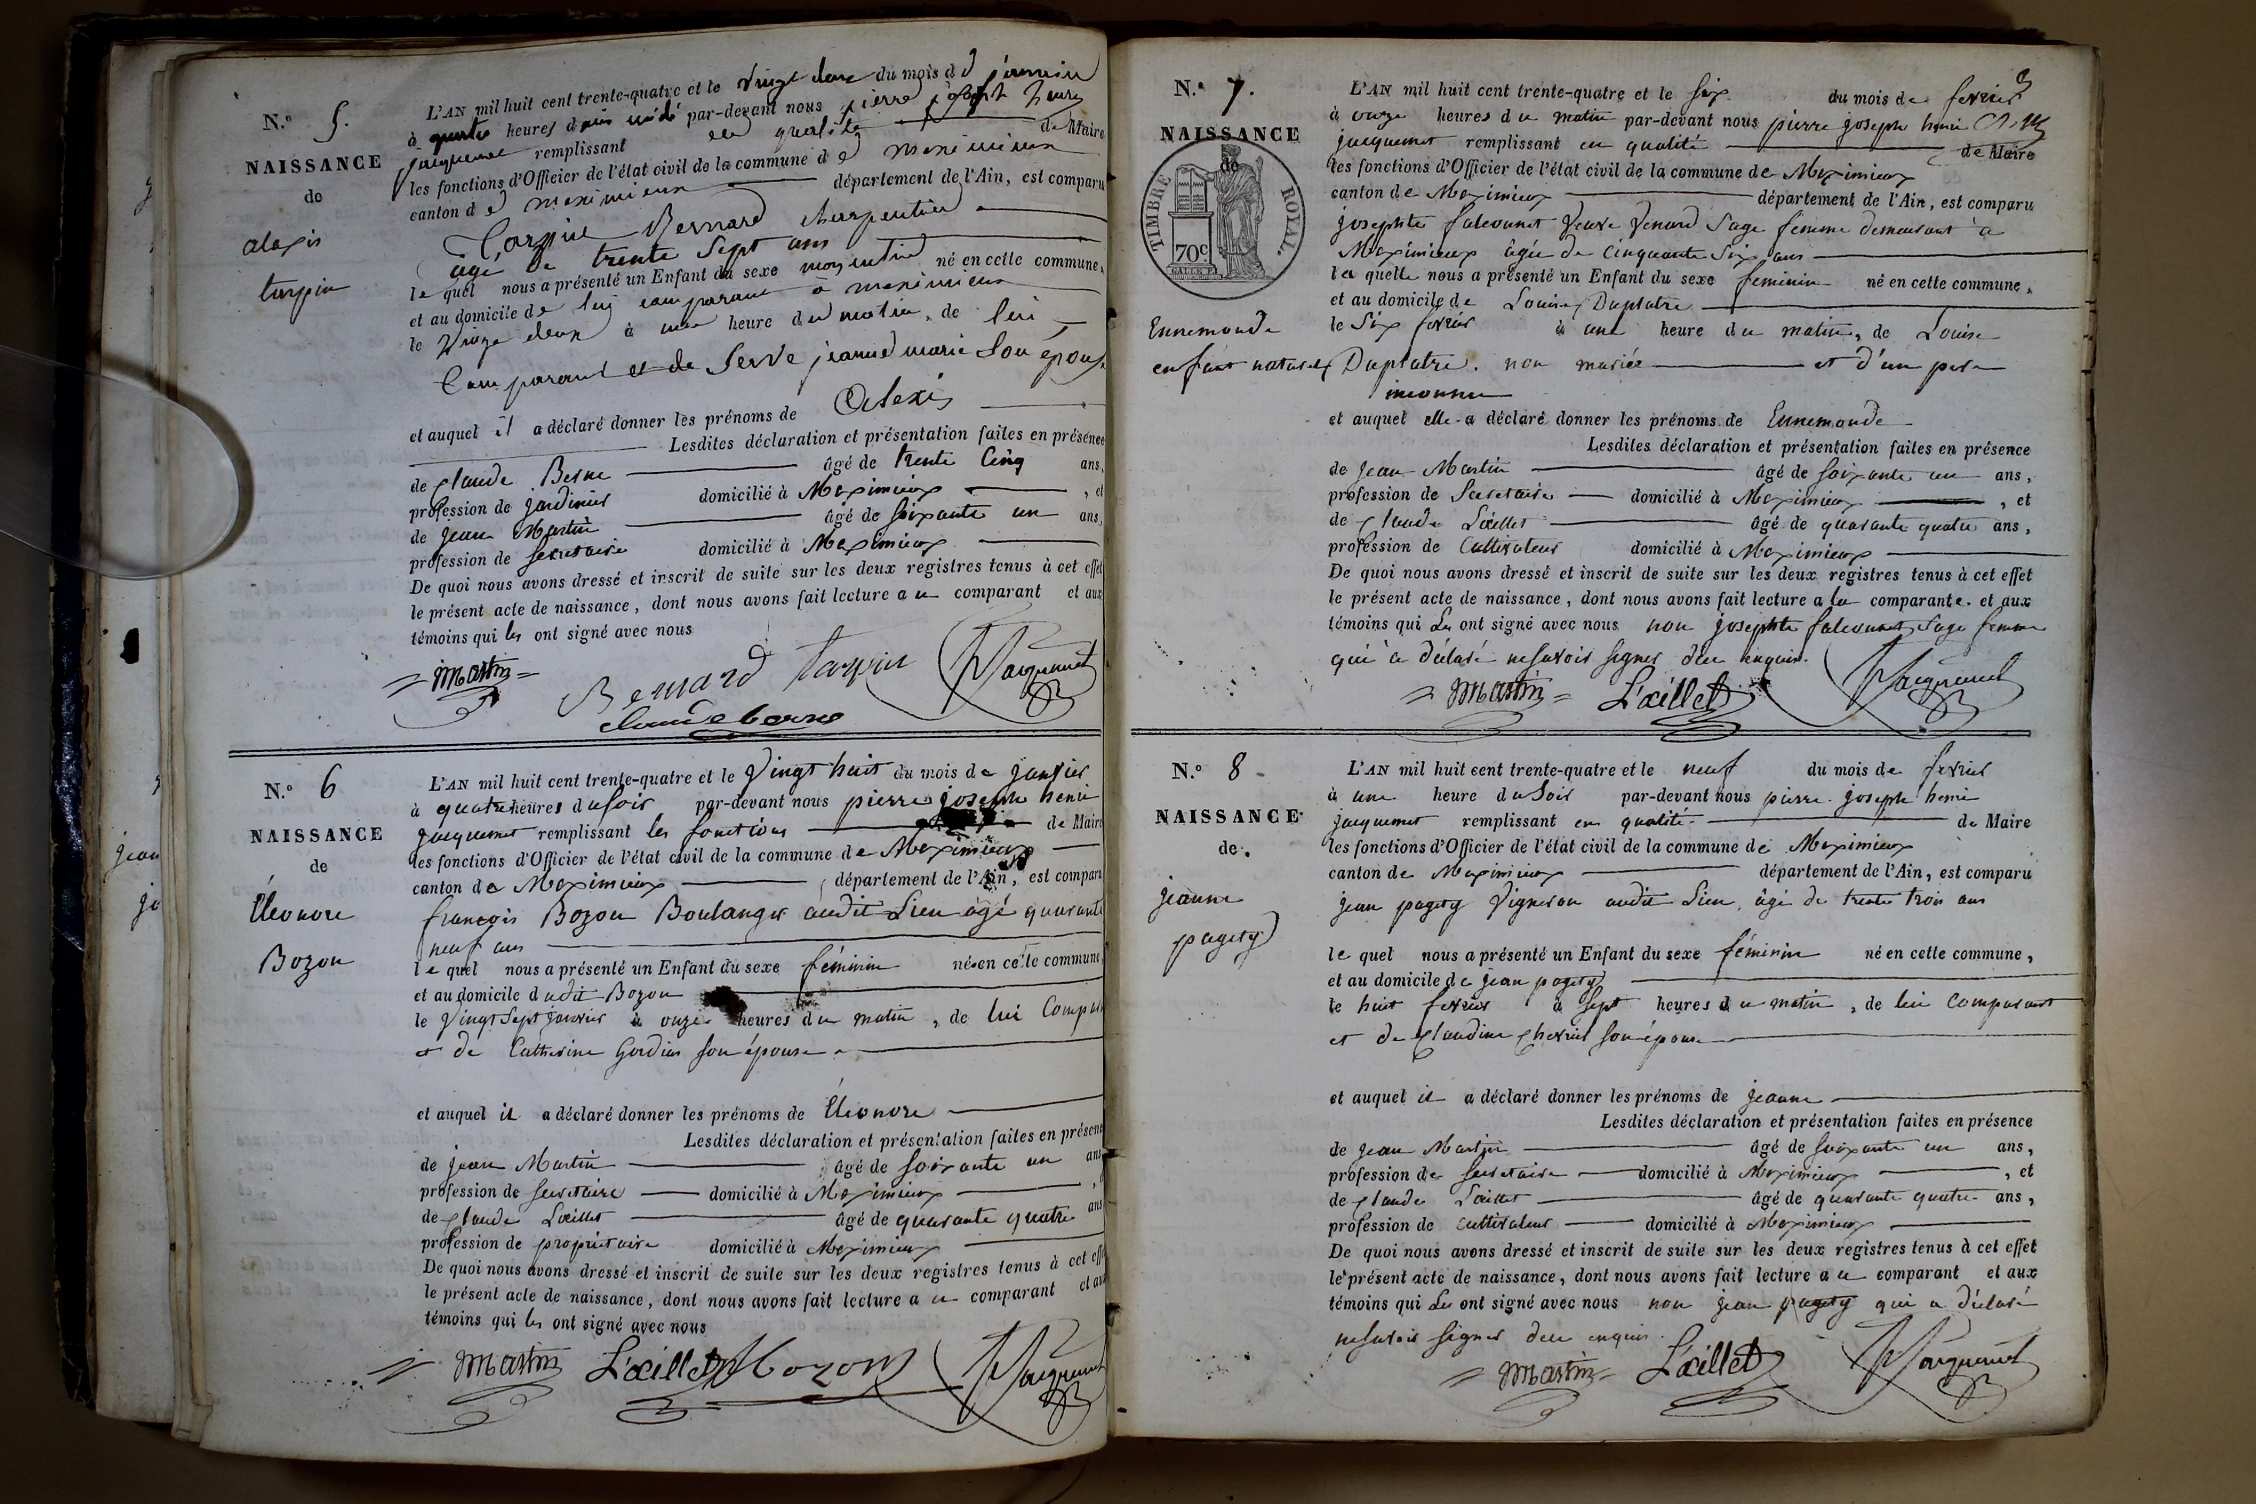 N.o 5.
NAISSANCE
de
alexis
turpin
L'AN mil huit cent trente-quatre et le vingt deux du mois de janvier
à quatre heures d par-devant nous pierre joseph henri
jacquemet remplissant en qualité de Maire
les fonctions d'Officier de l'état civil de la commune de meximieux
canton de meximieux département de l'Ain, est comparu
Turpin Bernard charpentier
âgé de trente sept ans
le quel nous a présenté un Enfant du sexe masculin né en cette commune,
et au domicile de lui comparant à meximieux
le vingt deux à une heure du matin, de lui
Comparant et de Serve jeanne marie son épouse
et auquel il a déclaré donner les prénoms de Alexis
Lesdites déclaration et présentation faites en présence
de claude Berne âgé de trente cinq ans,
profession de jardinier domicilié à Meximieux, et
de jean Martin âgé de soixante un ans,
profession de secretaire domicilié à Meximieux
De quoi nous avons dressé et inscrit de suite sur les deux registres tenus à cet effet
le présent acte de naissance, dont nous avons fait lecture au comparant et aux
témoins qui les ont signé avec nous
Martin Bernard Turpin Jacquemet
claude berne
N.o 6
NAISSANCE
de
Éléonore
Bozon
L'AN mil huit cent trente-quatre et le vingt huit du mois de janvier
à quatre heures du soir par-devant nous pierre joseph henri
jacquemet remplissant les fonctions de Maire
les fonctions d'Officier de l'état civil de la commune de Meximieux
canton de Meximieux département de l'Ain, est comparu
françois Bozon Boulanger audit Lieu âgé quarante
neuf ans
le quel nous a présenté un Enfant du sexe féminin né en cette commune,
et au domicile dudit Bozon
le vingt sept janvier à onze heures du matin, de lui Compar
et de Catherine Gordias son épouse
et auquel il a déclaré donner les prénoms de Éléonore
Lesdites déclaration et présentation faites en présence
de jean Martin âgé de soixante un ans
profession de secretaire domicilié à Meximieux,
de claude Lœillet âgé de quarante quatre ans
profession de proprietaire domicilié à Meximieux
De quoi nous avons dressé et inscrit de suite sur les deux registres tenus à cet effet
le présent acte de naissance, dont nous avons fait lecture au comparant et aux
témoins qui les ont signé avec nous
Martin L'œillet Bozon Jacquemet
N.o 7.
NAISSANCE
de
TIMBRE ROYAL.
70c
Ennemonde
enfant naturel
L'AN mil huit cent trente-quatre et le six du mois de fevrier
à onze heures du matin par-devant nous pierre joseph henri
jacquemet remplissant en qualité de Maire
les fonctions d'Officier de l'état civil de la commune de Meximieux
canton de Meximieux département de l'Ain, est comparu
josephte falconnet veuve Venard sage femme demeurant à
Meximieux âgée de cinquante six ans
la quelle nous a présenté un Enfant du sexe feminin né en cette commune,
et au domicile de Louise Duplatre
le six fevrier à une heure du matin, de Louise
Duplatre. non mariée et d'un pere
inconnu
et auquel elle a déclaré donner les prénoms de Ennemonde
Lesdites déclaration et présentation faites en présence
de jean Martin âgé de soixante un ans,
profession de Secretaire domicilié à Meximieux, et
de claude Lœillet âgé de quarante quatre ans,
profession de Cultivateur domicilié à Meximieux
De quoi nous avons dressé et inscrit de suite sur les deux registres tenus à cet effet
le présent acte de naissance, dont nous avons fait lecture a la comparante. et aux
témoins qui Les ont signé avec nous non josephte falconnet sage femme
qui a déclaré ne savoir signer de ce enquis.
Martin L'œillet Jacquemet
N.o 8
NAISSANCE
de
jeanne
pagety
L'AN mil huit cent trente-quatre et le neuf du mois de fevrier
à une heure du Soir par-devant nous pierre joseph henri
jacquemet remplissant en qualité de Maire
les fonctions d'Officier de l'état civil de la commune de Meximieux
canton de Meximieux département de l'Ain, est comparu
jean pagety Vigneron audit Lieu, âgé de trente trois ans
le quel nous a présenté un Enfant du sexe féminin né en cette commune,
et au domicile de jean pagety
le huit fevrier à sept heures du matin, de lui comparant
et de claudine chevrier son épouse
et auquel il a déclaré donner les prénoms de jeanne
Lesdites déclaration et présentation faites en présence
de jean Martin âgé de soixante un ans,
profession de secretaire domicilié à Meximieux, et
de claude Lœillet âgé de quarante quatre ans,
profession de cultivateur domicilié à Meximieux
De quoi nous avons dressé et inscrit de suite sur les deux registres tenus à cet effet
le présent acte de naissance, dont nous avons fait lecture au comparant et aux
témoins qui Les ont signé avec nous non jean pagety qui a déclaré
ne savoir signer de ce enquis.
Martin L'œillet Jacquemet